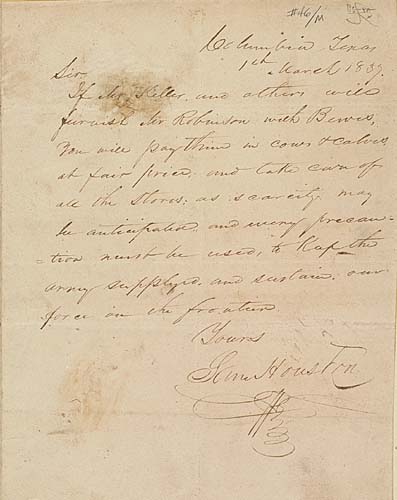 #46/M
Columbia Texas
1st March 1837.
Sir,
If Mr Keller, and others will
furnish Mr Robinson with Beeves,
You will pay them in cows & calves,
at fair price, and take care of
all the Stores, as scarcity may
be anticipated, and every precau-
-tion must be used, to Keep the
army supplyed, and sustain, our
force on the frontier.
Yours
Sam Houston